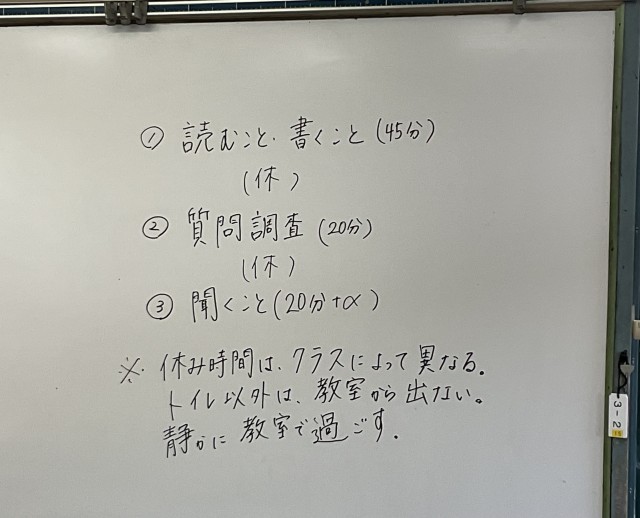 ① 読むこと・書くこと (45分)
(休)
② 質問調査 (20分)
(休)
③ 聞くこと (20分+α)
※ 休み時間は、クラスによって異なる。
トイレ以外は、教室から出ない。
静かに教室で過ごす.
3-2